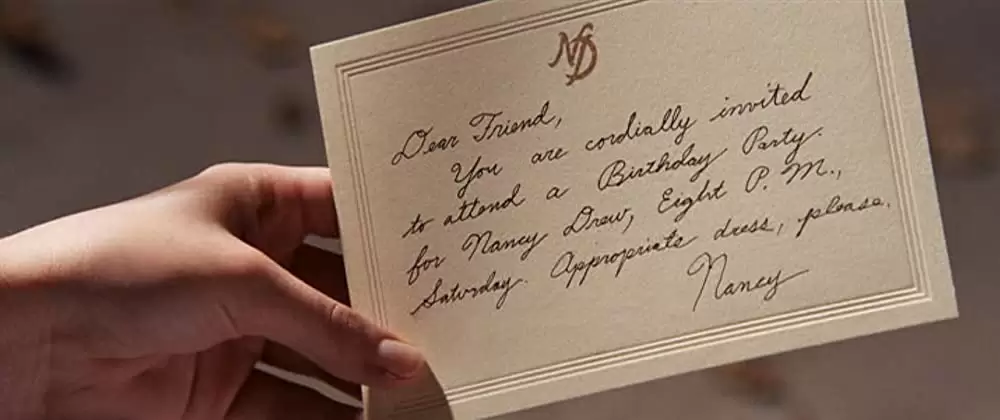 ND
Dear Friend,
You are cordially invited
to attend a Birthday Party.
for Nancy Drew, Eight P. M.,
Saturday. Appropriate dress, please.
Nancy